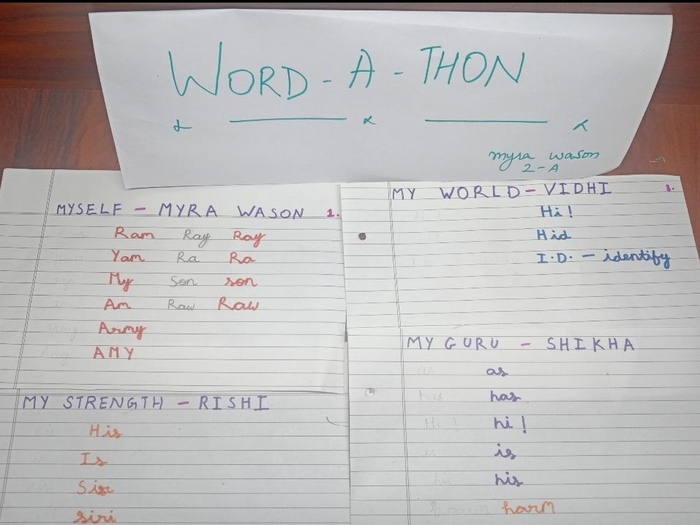 WORD - A - THON
myra wason
2-A
MYSELF - MYRA WASON 1.
Ram Ray Ray
Yam Ra Ra
My Son son
Am Raw Raw
Army
AMY
MY WORLD - VIDHI
Hi!
Hid
I.D. - identify
MY GURU - SHIKHA
as
has
hi!
is
his
harm
MY STRENGTH - RISHI
His
Is
Sis
siri